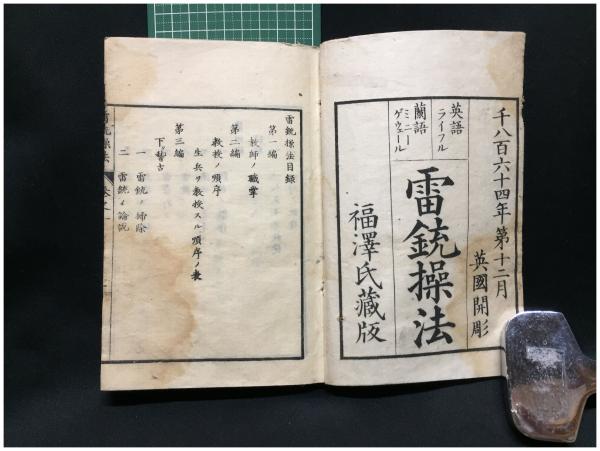 千八百六十四年第十二月
英國開彫
英語ライフル
蘭語ミニーゲウェール
雷銃操法
福澤氏蔵版
雷銃操法目録
第一編
教師ノ職掌
第二編
教授ノ順序
生兵ヲ教授スル順序ノ表
第三編
下稽古
一 雷銃ノ掃除
二 雷銃ノ論説
雷銃操法 巻之一